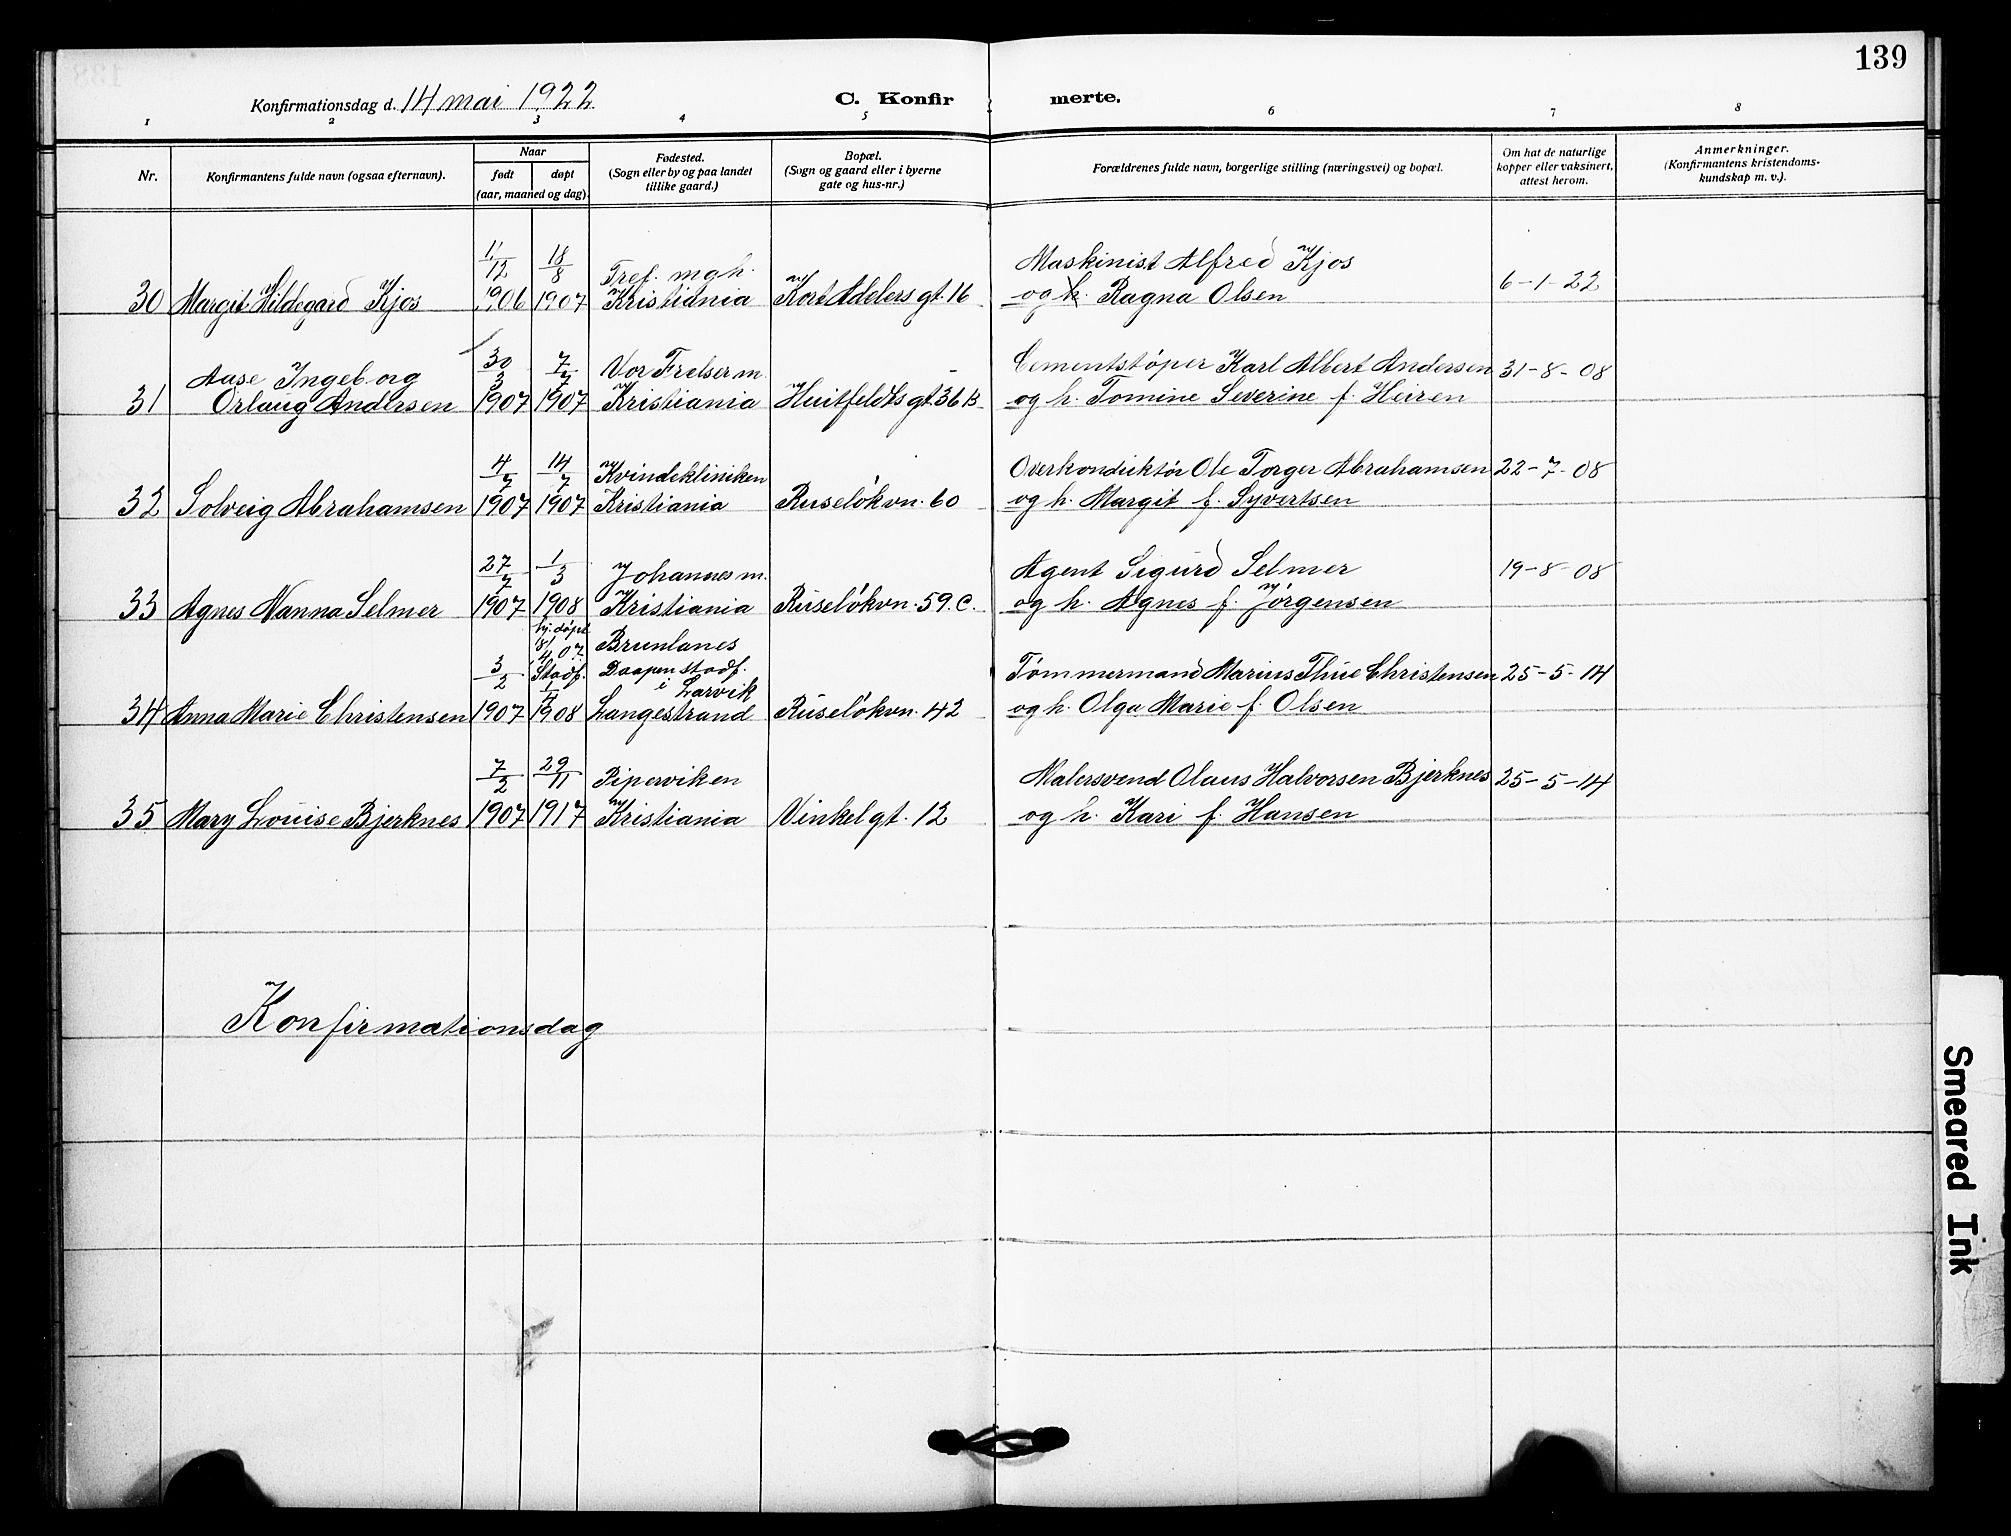 139
Konfirmationsdag d. 14 mai 1922
C. Konfir merte.
1 2 3 4 5 6 7 8
Nr.
Konfirmantens fulde navn (ogsaa efternavn).
Naar
født døpt
(aar, maaned og dag).
Fødested.
(Sogn eller by og paa landet
tillike gaard.)
Bopæl.
(Sogn og gaard eller i byerne
gate og hus-nr.)
Forældrenes fulde navn, borgerlige stilling (næringsvei) og bopæl.
Om hat de naturlige
kopper eller vaksinert,
attest herom.
Anmerkninger.
(Konfirmantens kristendoms-
kundskap m. v.).
11/12 18/8 Tref. mgh. Maskinist Alfred Kjos 6-1-22
30 Margit Hildegard Kjos 1906 1907 Kristiania Kort Adelers gt. 16 og h. Ragna Olsen
Aase Ingeborg 30/3 7/7 Vor Frelser m. Cementstøper Karl Albert Andersen 31-8-08
31 Orlaug Andersen 1907 1907 Kristiania Huitfeldts gt. 36 B og h. Tomine Severine f. Heiren
4/7 14/7 Kvindekliniken Overkonduktør Ole Torger Abrahamsen 22-7-08
32 Solveig Abrahamsen 1907 1907 Kristiania Ruseløkvn. 60 og h. Margit f. Syvertsen
27/7 1/3 Johannes m. Agent Sigurd Selmer 19-8-08
33 Agnes Nanna Selmer 1907 1908 Kristiania Ruseløkvn. 59. C. og h. Agnes f. Jørgensen
hj. døpt Brunlanes
18/4 07
3/2 Stadf. Daapen stadf. Tømmermand Marius Thue Christensen 25-5-14
1/4 i Larvik
34 Anna Marie Christensen 1907 1908 Langestrand Ruseløkvn. 42 og h. Olga Marie f. Olsen
7/2 29/11 Piperviken Malersvend Olaus Halvorsen Bjerknes 25-5-14
35 Mary Louise Bjerknes 1907 1917 Kristiania Vinkelgt. 12 og h. Kari f. Hansen
Konfirmationsdag
Smeared Ink